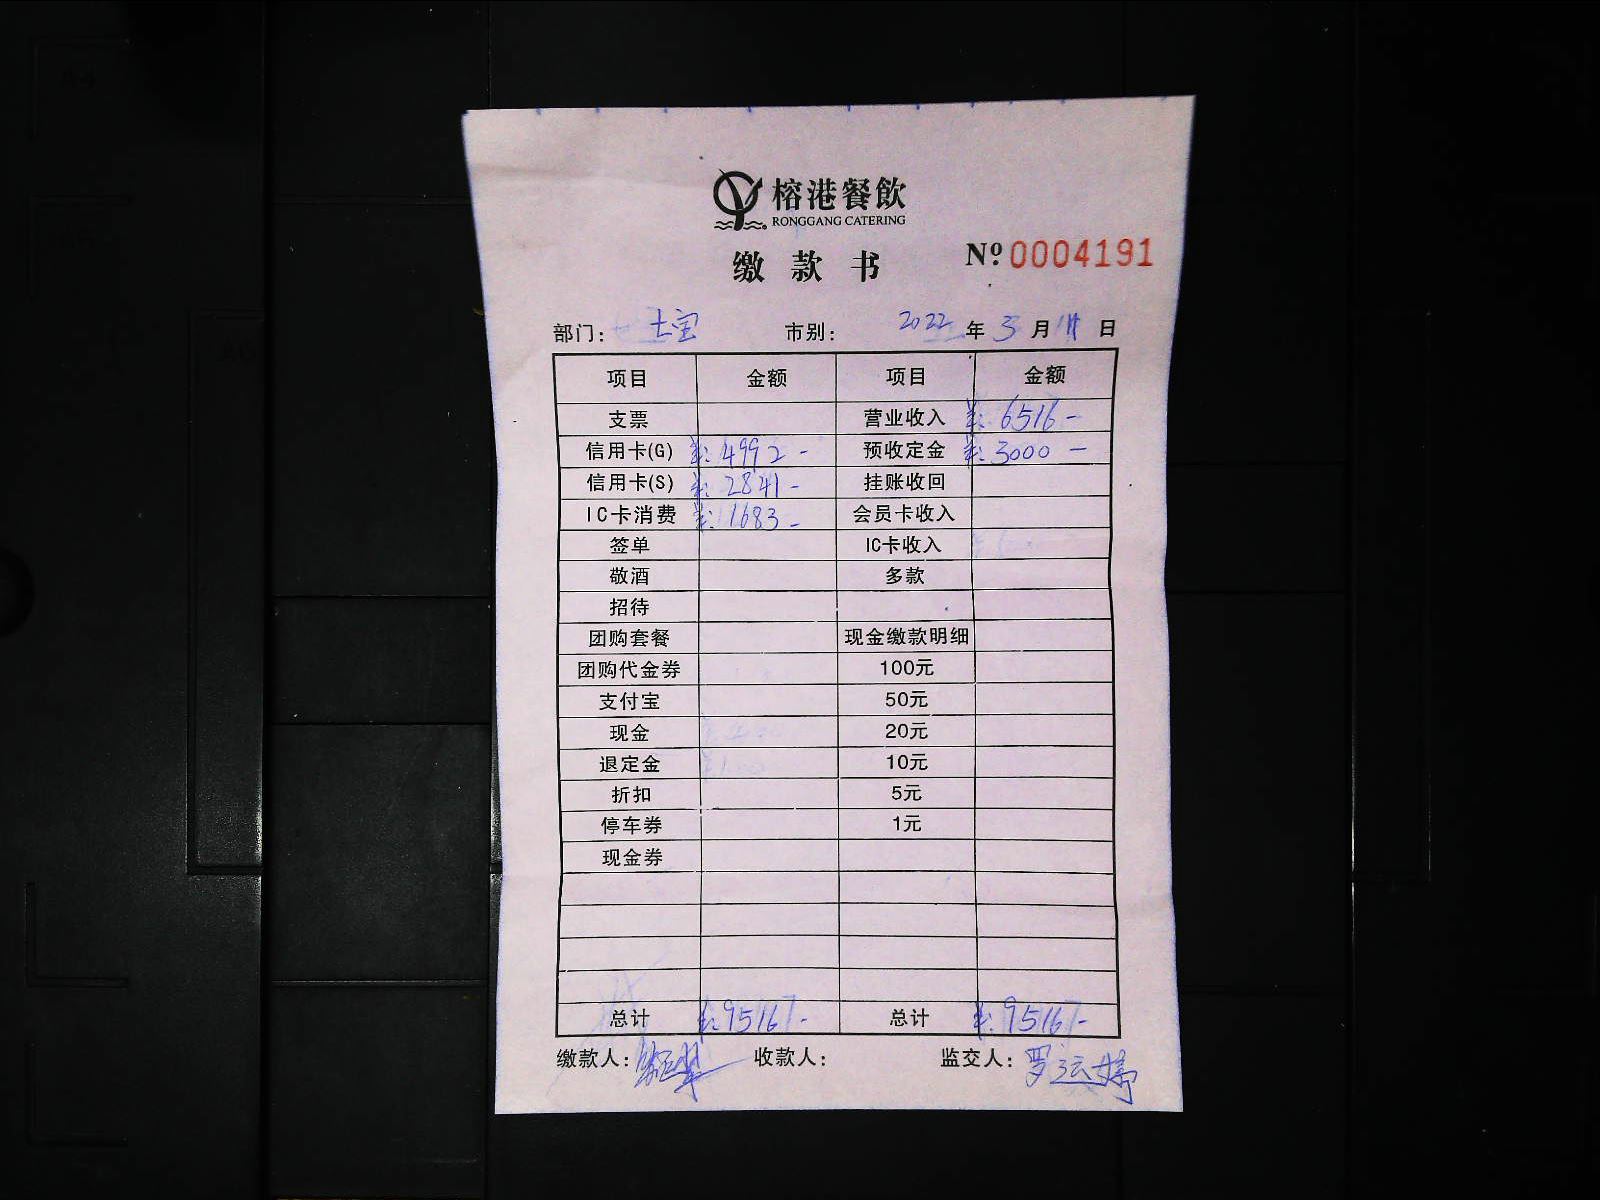 榕港餐飲
RONGGANG CATERING
缴款书 Nº 0004191
部门: 市别: 2022年3月 日
项目 金额 项目 金额
支票 营业收入 ¥:6516-
信用卡(G) ¥:4992- 预收定金 ¥:3000-
信用卡(S) ¥:2841- 挂账收回
IC卡消费 ¥:1683- 会员卡收入
签单 IC卡收入
敬酒 多款
招待
团购套餐 现金缴款明细
团购代金券 100元
支付宝 50元
现金 20元
退定金 10元
折扣 5元
停车券 1元
现金券
总计 ¥:9516- 总计 ¥:9516-
缴款人: 收款人: 监交人:罗运婷